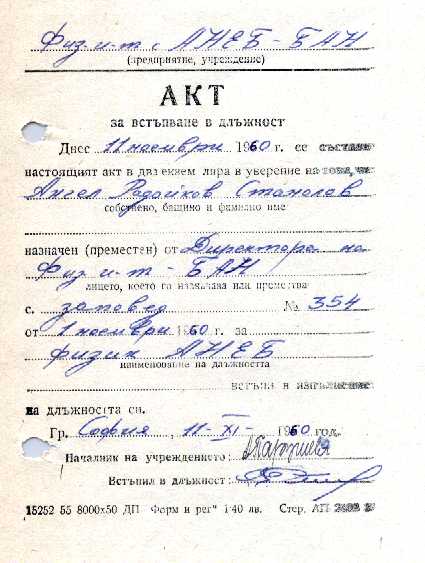 Физ. и-т с АНЕБ - БАН
(предприятие, учреждение)
АКТ
за встъпване в длъжност
Днес 11 ноември 1960 г. се състави
настоящият акт в два еднакви в уверение на това, че
Ангел
собствено, бащино и фамилно име
назначен (преместен) от Директора на
Физ. и-т - БАН
лицето, което го назначава или премества
с. заповед № 354
от 1 ноември 1960 г. за
физик АНЕБ
наименование на длъжността
встъпи в изпълнение
на длъжността си.
Гр. София, 11-XI- 1960 год.
Началник на учреждението:
Встъпил в длъжност:
15252 55 8000х50 ДП „Форм и рег" 1·40 лв. Стер. АТП